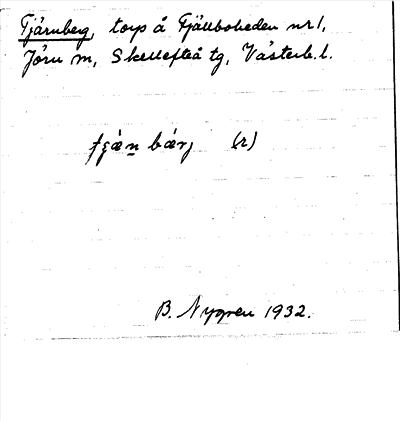 Tjärnberg, torp å Fjällboheden nr 1,
Jörn m, Skellefteå tg, Västerb. l.
(r)
B. Nygren 1932.